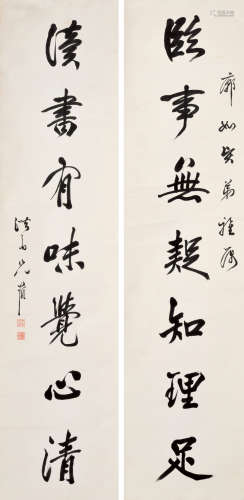 廓如賢弟雅屬
臨事無疑知理足
讀書有味覺心清